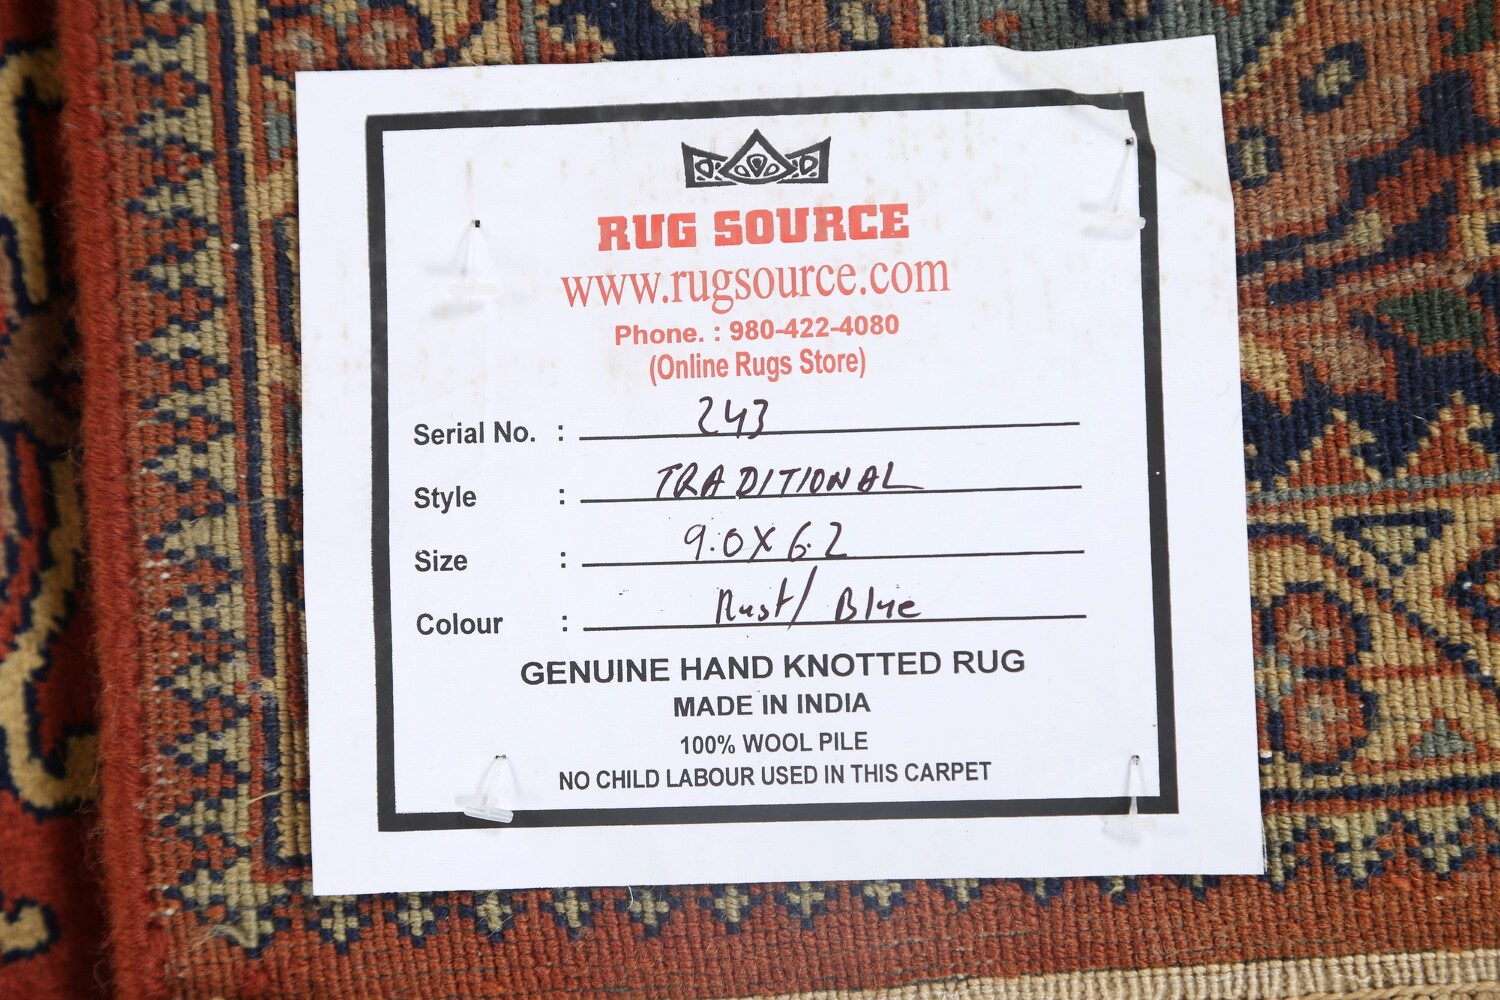 RUG SOURCE
www.rugsource.com
Phone. : 980-422-4080
(Online Rugs Store)
Serial No. : 243
Style : TRADITIONAL
Size : 9.0X6.2
Colour : Rust/Blue
GENUINE HAND KNOTTED RUG
MADE IN INDIA
100% WOOL PILE
NO CHILD LABOUR USED IN THIS CARPET